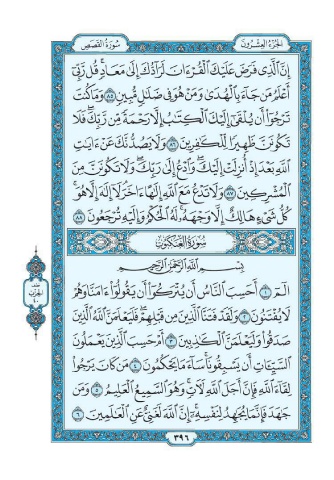 الجزء العشرون سورة القصص
إِنَّ ٱلَّذِى فَرَضَ عَلَيْكَ ٱلْقُرْءَانَ لَرَآدُّكَ إِلَىٰ مَعَادٍۚ قُل رَّبِّىٓ
أَعْلَمُ مَن جَآءَ بِٱلْهُدَىٰ وَمَنْ هُوَ فِى ضَلَٰلٍ مُّبِينٍ ٨٥ وَمَا كُنتَ
تَرْجُوٓا۟ أَن يُلْقَىٰٓ إِلَيْكَ ٱلْكِتَٰبُ إِلَّا رَحْمَةً مِّن رَّبِّكَۖ فَلَا
تَكُونَنَّ ظَهِيرًا لِّلْكَٰفِرِينَ ٨٦ وَلَا يَصُدُّنَّكَ عَنْ ءَايَٰتِ
ٱللَّهِ بَعْدَ إِذْ أُنزِلَتْ إِلَيْكَۖ وَٱدْعُ إِلَىٰ رَبِّكَۖ وَلَا تَكُونَنَّ مِنَ
ٱلْمُشْرِكِينَ ٨٧ وَلَا تَدْعُ مَعَ ٱللَّهِ إِلَٰهًا ءَاخَرَۘ لَآ إِلَٰهَ إِلَّا هُوَۚ
كُلُّ شَىْءٍ هَالِكٌ إِلَّا وَجْهَهُۥۚ لَهُ ٱلْحُكْمُ وَإِلَيْهِ تُرْجَعُونَ ٨٨
سورة العنكبوت
بِسْمِ ٱللَّهِ ٱلرَّحْمَٰنِ ٱلرَّحِيمِ
الٓمٓ ١ أَحَسِبَ ٱلنَّاسُ أَن يُتْرَكُوٓا۟ أَن يَقُولُوٓا۟ ءَامَنَّا وَهُمْ
لَا يُفْتَنُونَ ٢ وَلَقَدْ فَتَنَّا ٱلَّذِينَ مِن قَبْلِهِمْۖ فَلَيَعْلَمَنَّ ٱللَّهُ ٱلَّذِينَ
صَدَقُوا۟ وَلَيَعْلَمَنَّ ٱلْكَٰذِبِينَ ٣ أَمْ حَسِبَ ٱلَّذِينَ يَعْمَلُونَ
ٱلسَّيِّـَٔاتِ أَن يَسْبِقُونَاۚ سَآءَ مَا يَحْكُمُونَ ٤ مَن كَانَ يَرْجُوا۟
لِقَآءَ ٱللَّهِ فَإِنَّ أَجَلَ ٱللَّهِ لَـَٔاتٍۚ وَهُوَ ٱلسَّمِيعُ ٱلْعَلِيمُ ٥ وَمَن
جَٰهَدَ فَإِنَّمَا يُجَٰهِدُ لِنَفْسِهِۦٓۚ إِنَّ ٱللَّهَ لَغَنِىٌّ عَنِ ٱلْعَٰلَمِينَ ٦
٣٩٦